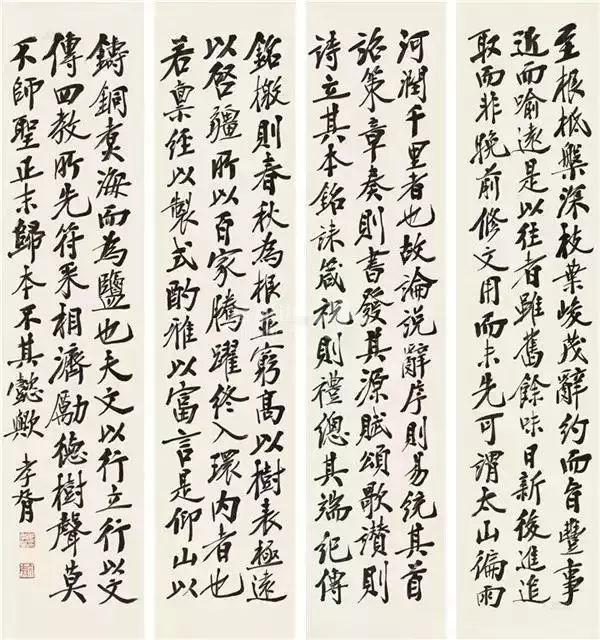 至根柢槃深枝葉峻茂辭約而旨豐事
近而喻遠是以往者雖舊餘味日新後進追
取而非晚前修文用而未先可謂太山徧雨
河潤千里者也故論說辭序則易統其首
詔策章奏則書發其源賦頌歌讚則
詩立其本銘誄箴祝則禮總其端記傳
銘檄則春秋為根並窮高以樹表極遠
以啓疆所以百家騰躍終入環內者也
若稟經以製式酌雅以富言是仰山以
鑄銅煑海而為鹽也夫文以行立行以文
傳四教所先符采相濟勵德樹聲莫
不師聖正末歸本不其懿歟 孝胥